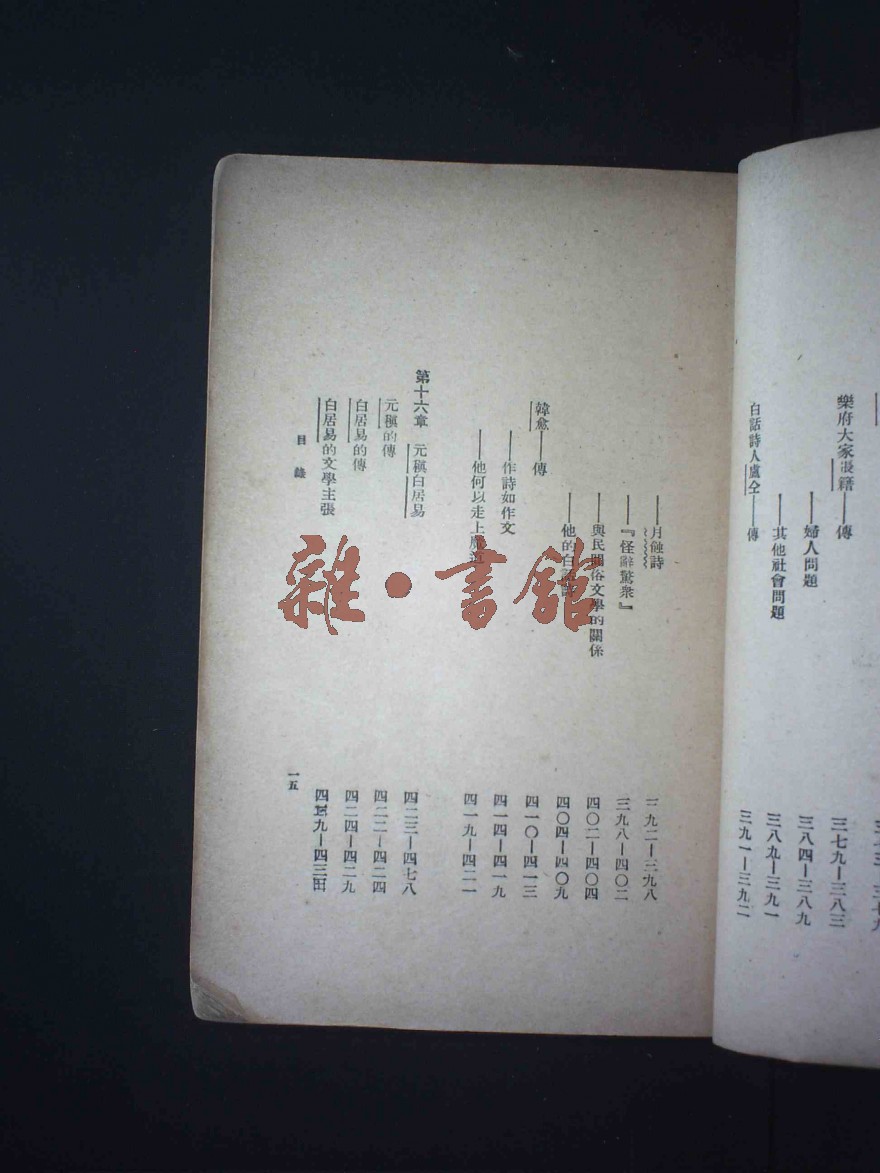 樂府大家張籍——傳 三七九—三八三
——婦人問題 三八四—三八九
——其他社會問題 三八九—三九一
白話詩人盧仝——傳 三九一—三九二
——月蝕詩 三九二—三九八
——『怪辭驚衆』 三九八—四〇二
——與民間俗文學的關係 四〇二—四〇四
——他的白話詩 四〇四—四〇九
韓愈——傳 四一〇—四一三
——作詩如作文 四一四—四一九
——他何以走上 四一九—四二一
第十六章 元稹白居易 四二三—四七八
元稹的傳 四二二—四二四
白居易的傳 四二四—四二九
白居易的文學主張 四二九—四三
目錄 一五
雜·書館